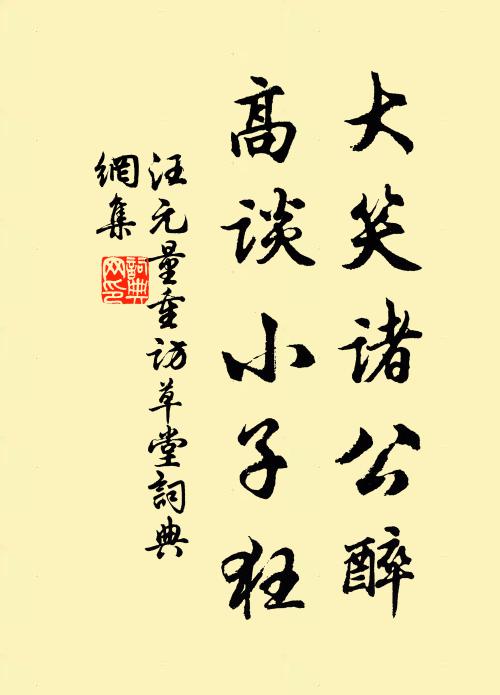 大笑诸公醉
高谈小子狂
汪元量重访草堂詞典
網集
詞典
网印